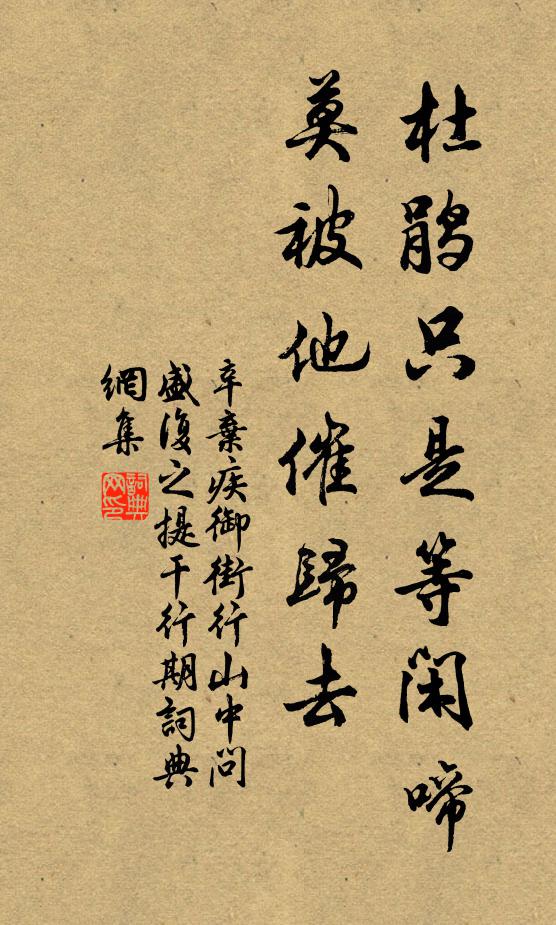 杜鹃只是等闲啼
莫被他催歸去
辛棄疾御街行山中問
盛復之提干行期詞典
網集
詞典
网印